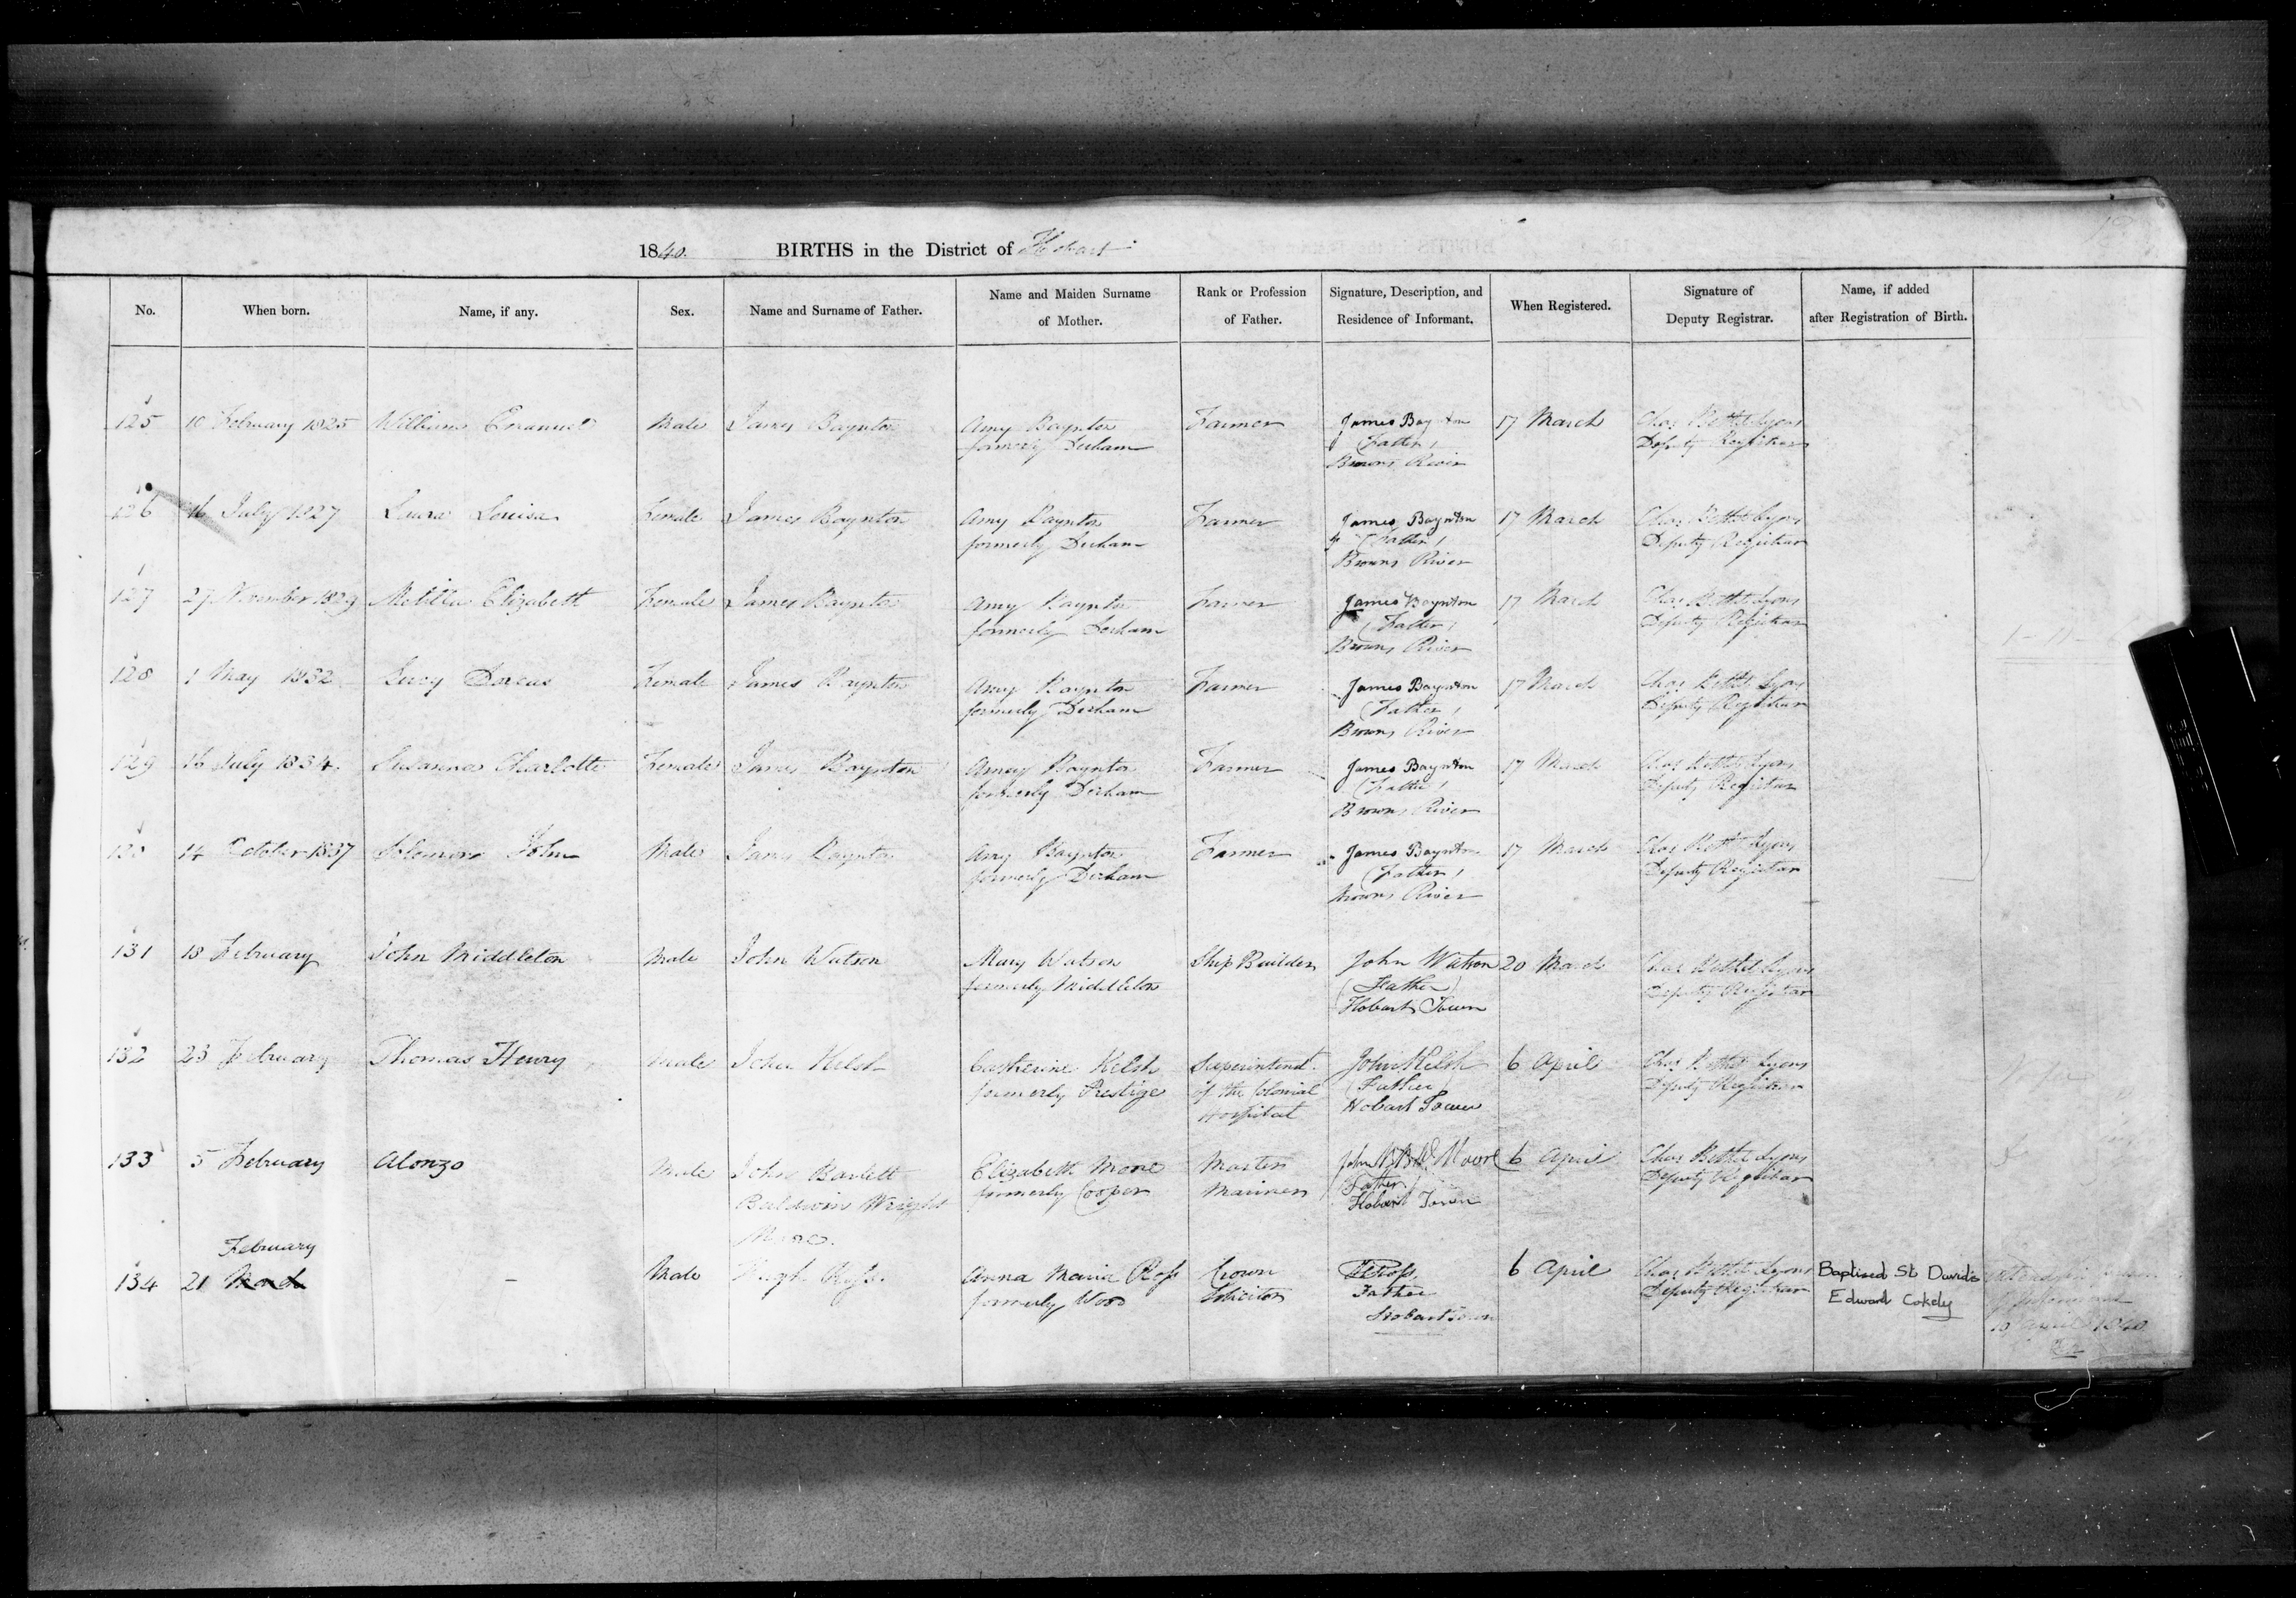 1840. BIRTHS in the District of Hobart
No. When born. Name, if any. Sex. Name and Surname of Father. Name and Maiden Surname of Mother. Rank or Profession of Father. Signature, Description, and Residence of Informant. When Registered. Signature of Deputy Registrar. Name, if added after Registration of Birth.
125 10 February 1825 William Emanuel Male James Baynton Amy Baynton Farmer James Baynton 17 March Chas Bethel Lyons
formerly Derham (Father) Deputy Registrar
Browns River
126 16 July 1827 Laura Louisa Female James Baynton Amy Baynton Farmer James Baynton 17 March Chas Bethel Lyons
formerly Derham (Father) Deputy Registrar
Browns River
127 27 November 1829 Elizabeth Female James Baynton Amy Baynton Farmer James Baynton 17 March Chas Bethel Lyons
formerly Derham (Father) Deputy Registrar
Browns River
128 1 May 1832 Lucy Dorcas Female James Baynton Amy Baynton Farmer James Baynton 17 March Chas Bethel Lyons
formerly Derham (Father) Deputy Registrar
Browns River
129 16 July 1834. Susanna Charlotte Female James Baynton Amey Baynton Farmer James Baynton 17 March Chas Bethel Lyons
formerly Derham (Father) Deputy Registrar
Browns River
130 14 October 1837 Solomon John Male James Baynton Amy Baynton Farmer James Baynton 17 March Chas Bethel Lyons
formerly Derham (Father) Deputy Registrar
Browns River
131 18 February John Middleton Male John Watson Mary Watson Ship Builder John Watson 20 March Chas Bethel Lyons
formerly Middleton (Father) Deputy Registrar
Hobart Town
132 23 February Thomas Henry Male John Kelsh Catherine Kelsh Superintendt. John Kelsh 6 April Chas Bethel Lyons
formerly Prestige of the Colonial (Father) Deputy Registrar
Hospital Hobart Town
133 5 February Alonzo Male John Bartlett Elizabeth Moore Master John B B W Moore 6 April Chas Bethel Lyons
Baldwin Wright formerly Cooper Mariner (Father) Deputy Registrar
Moore. Hobart Town
February
134 21 March - Male Hugh Ross. Anna Maria Ross Crown H Ross, 6 April Chas Bethel Lyons Baptised St David's
formerly Wood Solicitor Father Deputy Registrar Edward Cokely
Hobart Town
10 April 1840